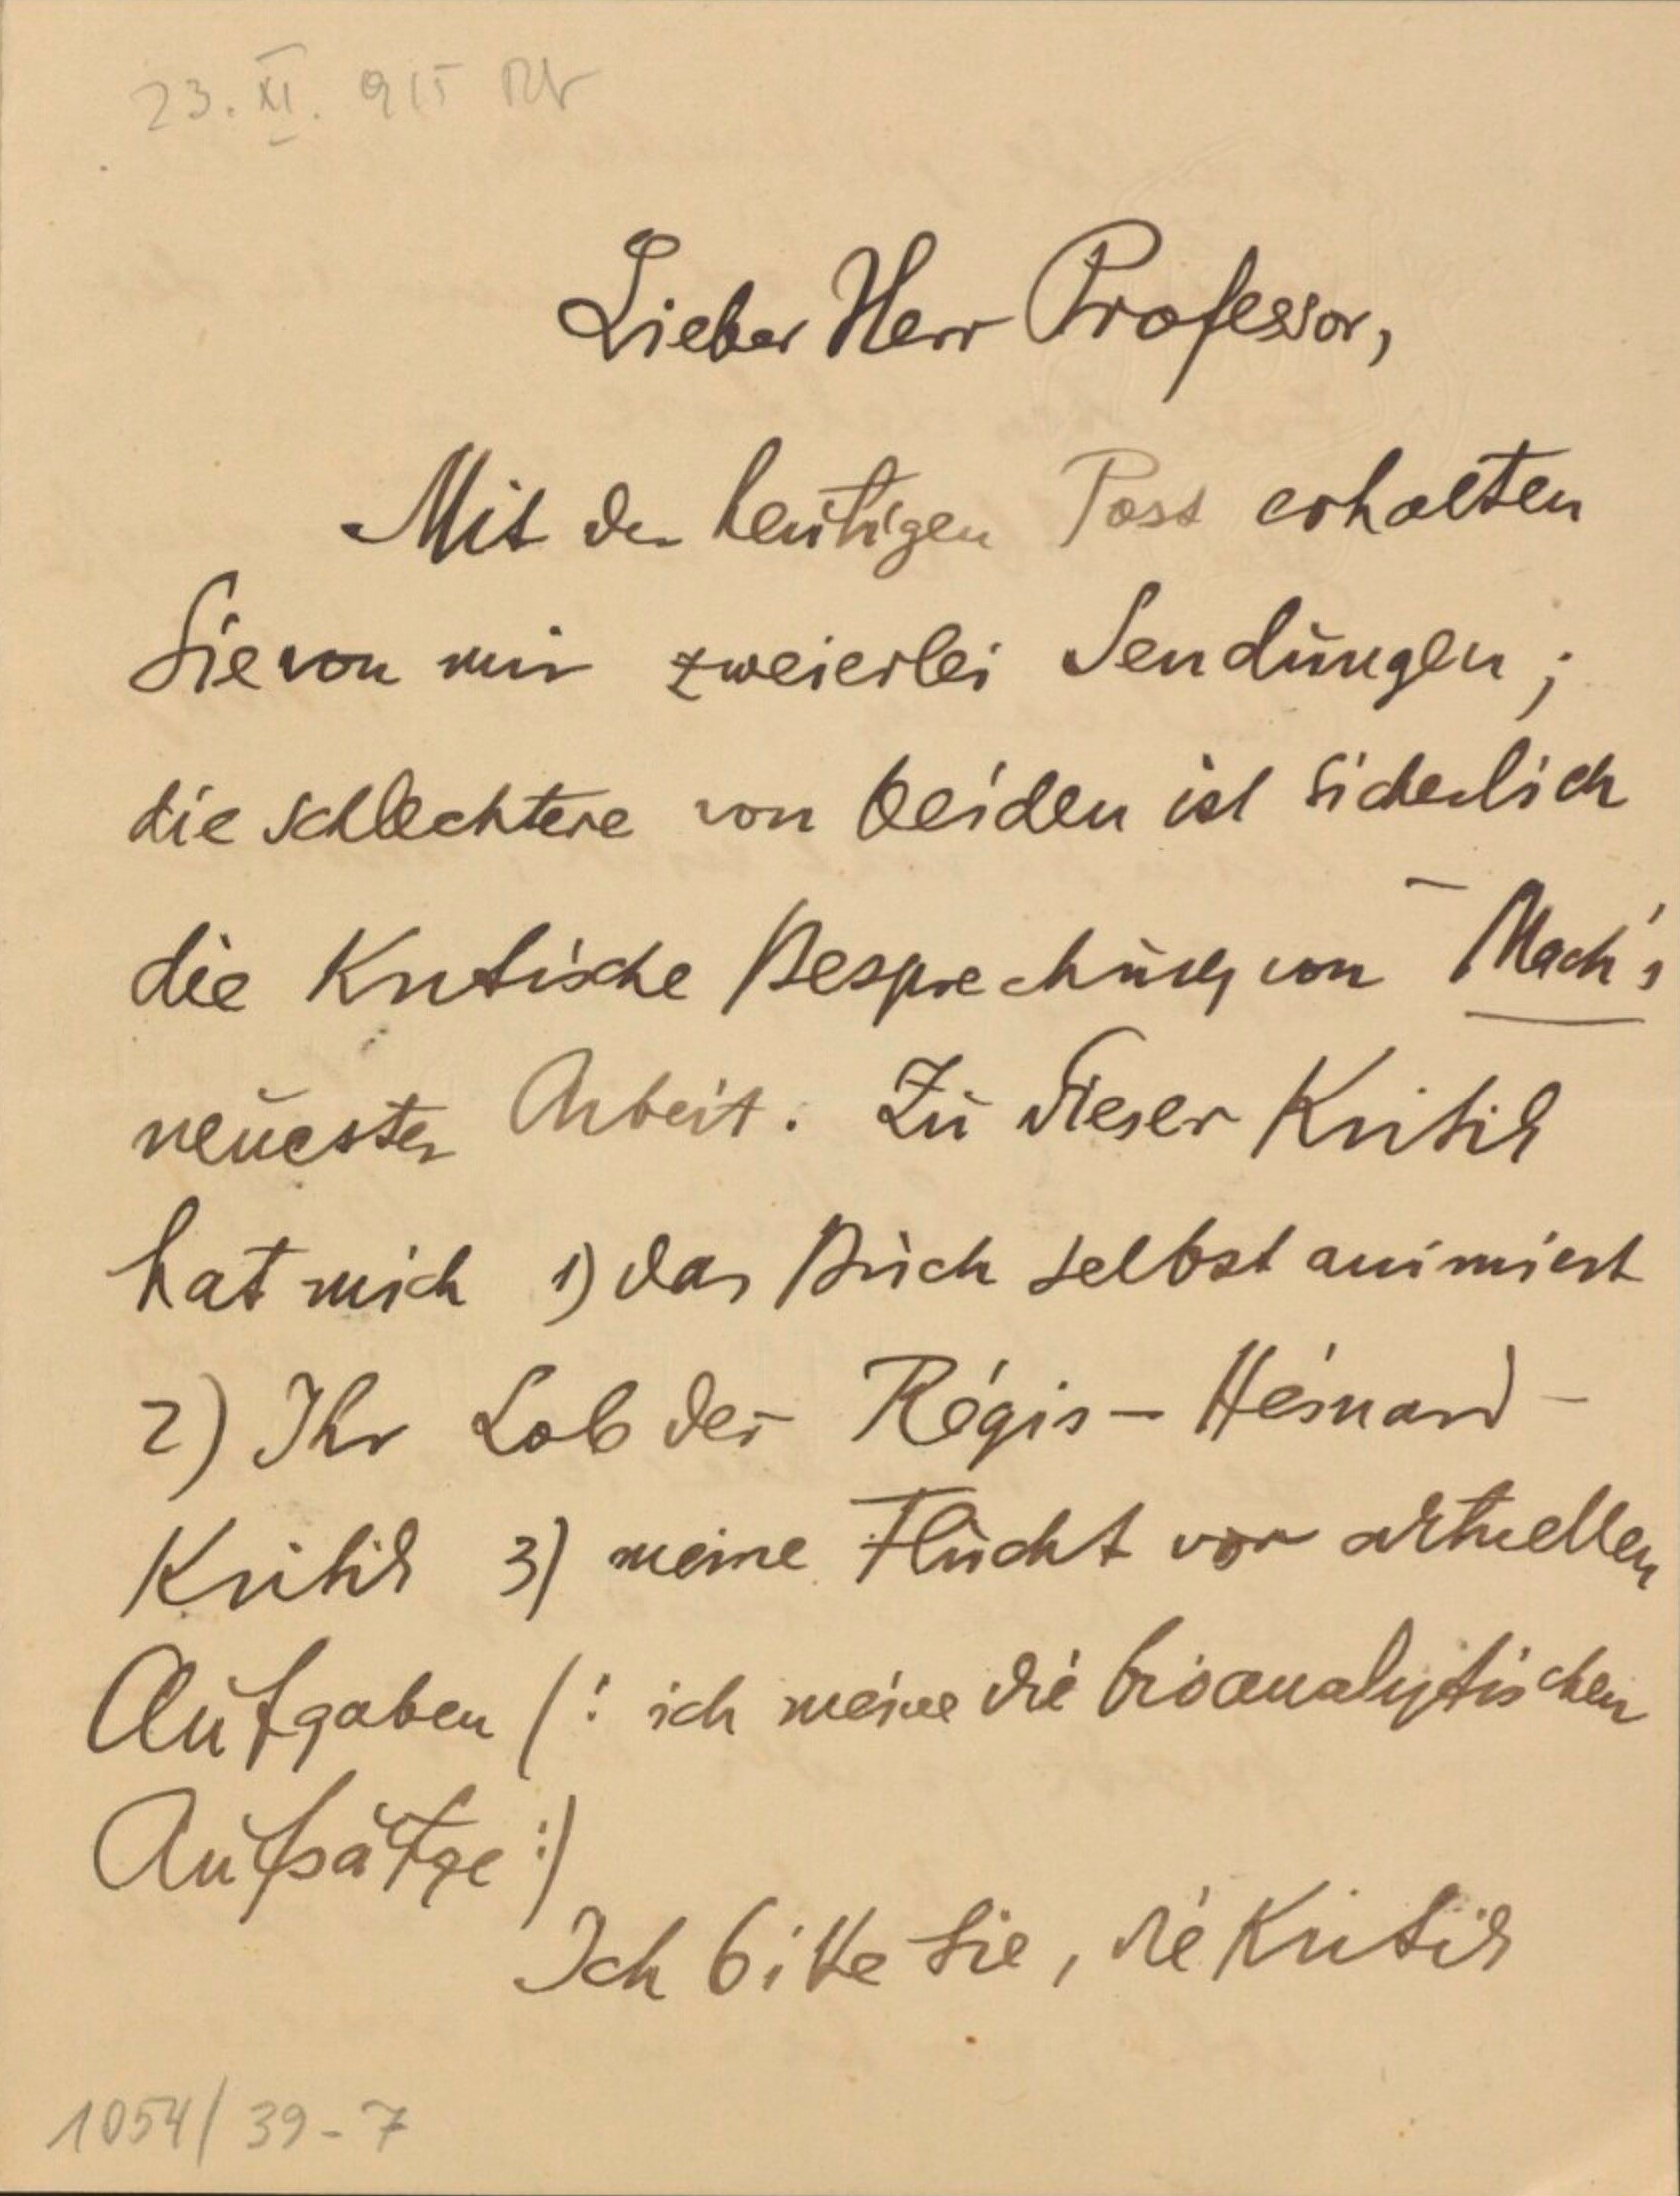 23. XI. 915
Lieber Herr Professor,
Mit der heutigen Post erhalten
Sie von mir zweierlei Sendungen;
die schlechtere von beiden ist sicherlich
die Kritische Besprechung von Mach's
neuester Arbeit. Zu dieser Kritik
hat mich 1) das Buch selbst animiert
2) Ihr Lob der Régis-Hésnard-
Kritik 3) meine Flucht vor aktuellen
Aufgaben (: ich meine die bioanalytischen
Aufsätze :)
Ich bitte Sie, die Kritik
1054/39-7